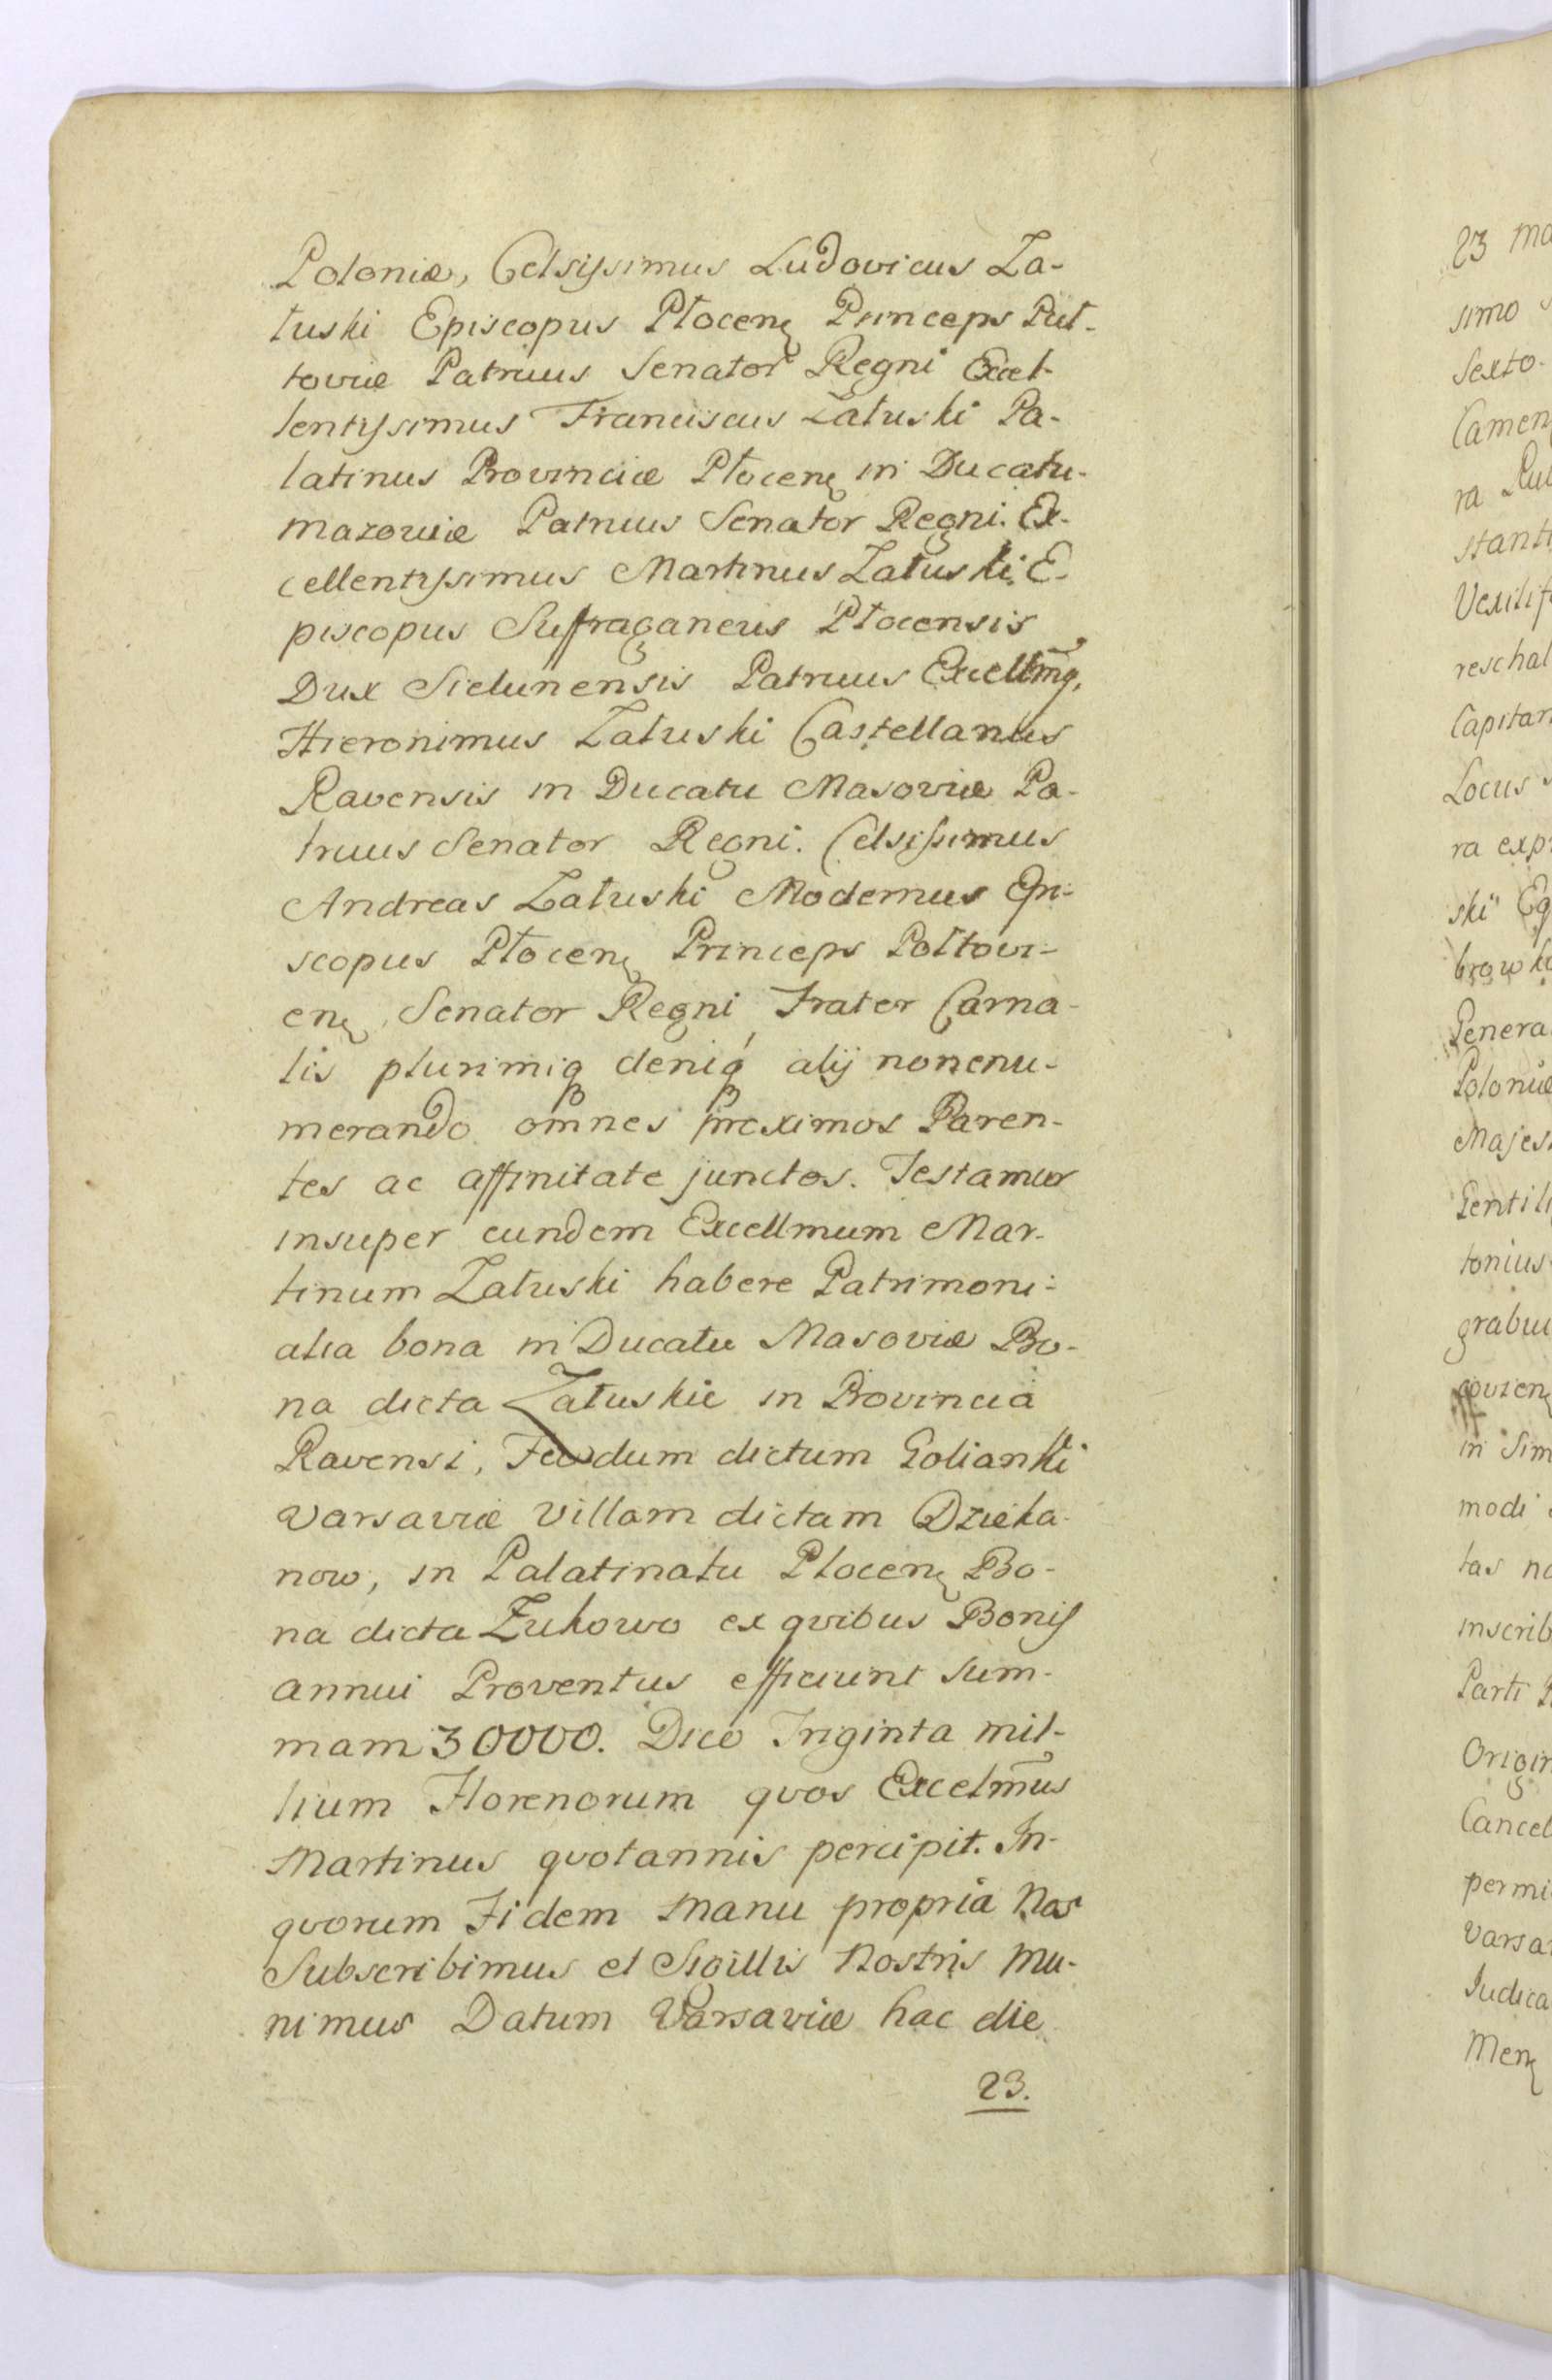 Poloniæ, Celsissimus Ludovicus Za-
łuski Episcopus Płocenę Princeps Puł-
toviæ Patruus Senator Regni Excel-
lentissimus Franciscus Załuski Pa-
latinus Provinciæ Płocenę in Ducatu-
Mazoviæ Patruus Senator Regni. Ex-
cellentissimus Martinus Załuski E-
piscopus Suffraganeus Płocensis
Dux Sielunensis Patruus Excellmꝯ,
Hieronimus Załuski Castellanus
Ravensis in Ducatu Masoviæ Pa-
truus Senator Regni. Celsissimus
Andreas Załuski Modernus Epi-
scopus Płocenę Princeps Poltovi-
enę, Senator Regni Frater Carna-
lis plurimiq deniq alij nonenu-
merando omnes proximos Paren-
tes ac affinitate junctos. Testamur
insuper eundem Excellmum Mar-
tinum Załuski habere Patrimoni-
alia bona in Ducatu Masoviæ Bo-
na dicta Załuskie in Provincia
Ravensi, Feudum dictum Golianki
Varsaviæ Villam dictam Dzieka-
now, in Palatinatu Plocenę Bo-
na dicta Żukowo ex qvibus Bonis
annui Proventus efficiunt Sum-
mam 30000. Dico Triginta mil-
lium Florenorum qvos Excelm̃us
Martinus qvotannis percipit. In-
qvorum Fidem Manu propria Nos
Subscribimus et Sigillis Nostris Mu-
nimus Datum Varsaviæ hac die
23.
23
simo
Sexto-
Camenę
ra
Locus
ra
in
modi
Parti
Varsa
Judica
Menę